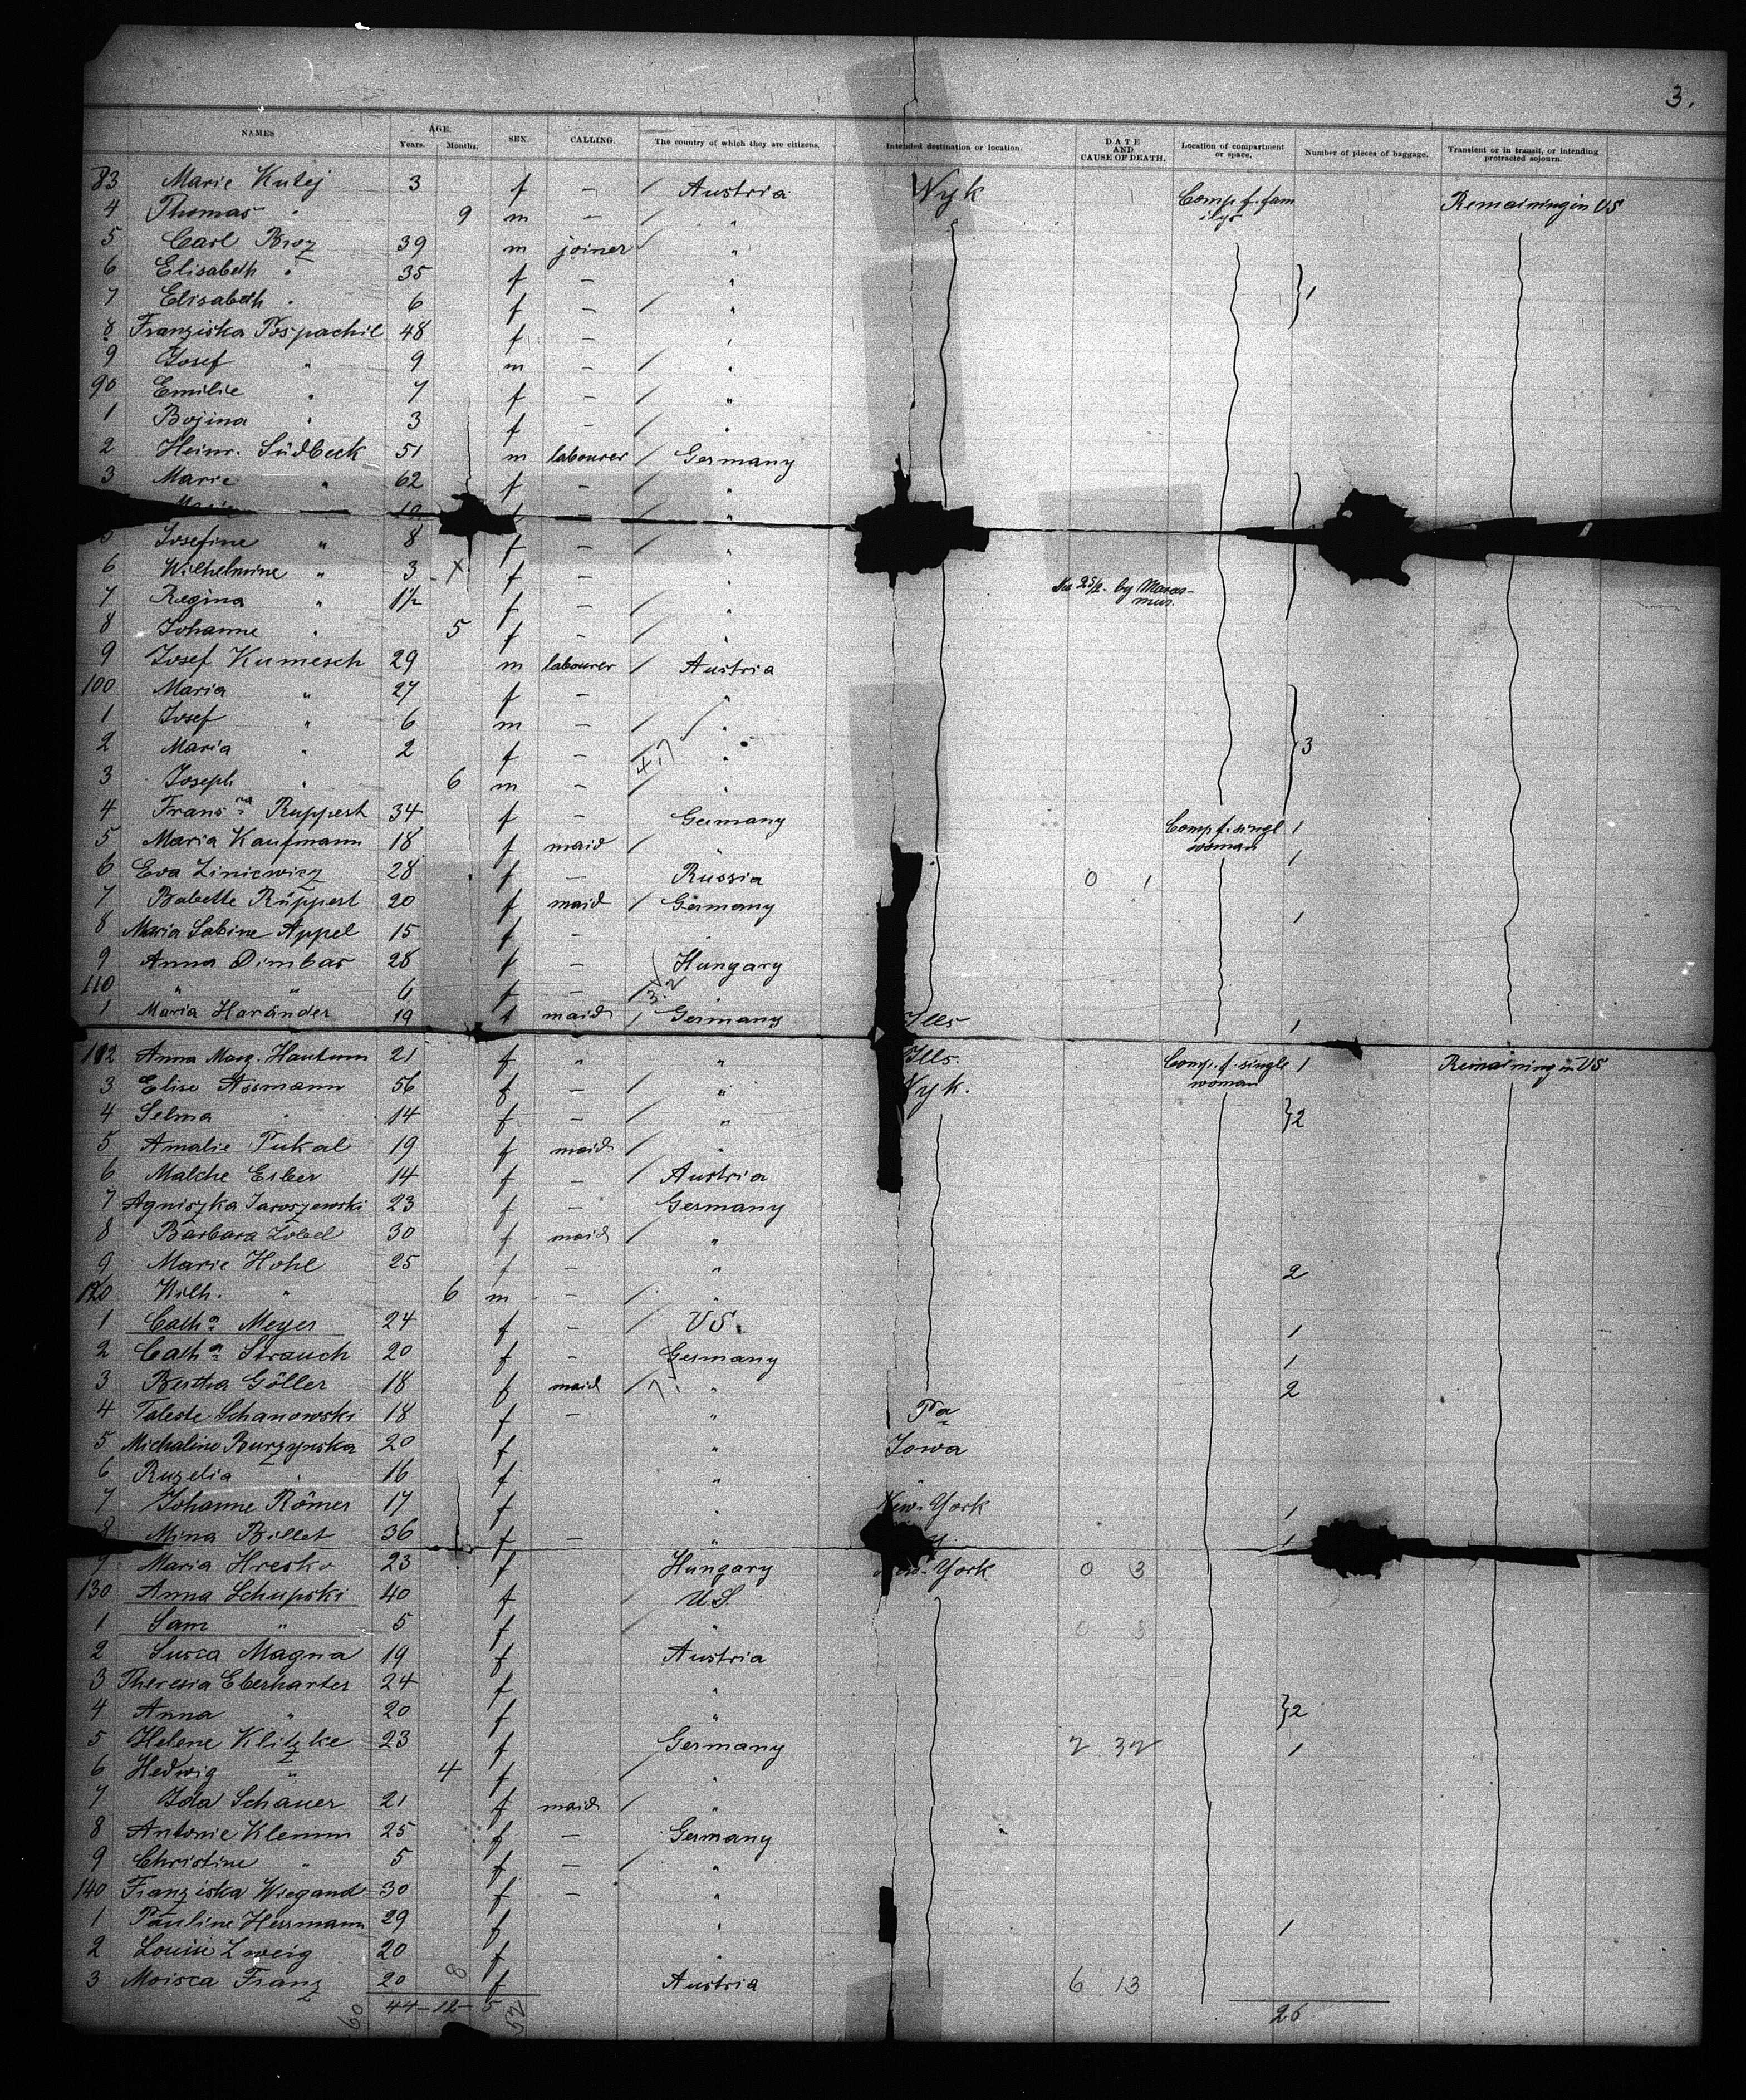 3.
NAMES AGE. Years. Months. SEX. CALLING. The country of which they are citizens. Intended destination or location. DATE AND CAUSE OF DEATH. Location of compartment or space. Number of pieces of baggage. Transient or in transit, or intending protracted sojourn.
83 Marie Kutej 3 f — / Austria Nyk Comp. f. fam ilys Remaining in US
4 Thomas " 9 m — / "
5 Carl Broz 39 m joiner / "
6 Elisabeth " 35 f — "
7 Elisabeth " 6 f — / " } 1
8 Franziska Pospachil 48 f — "
9 Josef " 9 m — / "
90 Emilie " 7 f — / "
1 Bojina " 3 f — / "
2 Heinr. Südbeck 51 m labourer / Germany
3 Marie " 62 f — / "
Marie — / "
5 Josefine " 8 f — / "
6 Wilhelmine " 3 X f — "
7 Regina " 1½ f — / " by Maras- mus.
8 Johanne " 5 f — / "
9 Josef Kumesch 29 m labourer / Austria
100 Maria " 27 f — "
1 Josef " 6 m — / "
2 Maria " 2 f — / " } 3
3 Joseph " 6 m — / "
4 Frans ca Ruppert 34 f — Germany Comp. f. singl woman 1
5 Maria Kaufmann 18 f maid / " 1
6 Eva Liniewicz 28 f — Russia 0 1
7 Babette Rüppert 20 f maid / Germany 1
8 Maria Sabine Appel 15 f — "
9 Anna Dimbas 28 f — Hungary
110 " " 6 f — / "
1 Maria Haränder 19 f maid / Germany Ills 1
112 Anna Marg. Hautum 21 f " " Ills. Comp. f. single woman 1 Remaining in US
3 Elise Assmann 56 f — / " Nyk.
4 Selma " 14 f — / " } 2
5 Amalie Pukal 19 f maid / "
6 Malche Erber 14 f — / Austria
7 Agniszka Jaroszewski 23 f — Germany
8 Barbara Zobel 30 f maid / "
9 Marie Hohl 25 f — " 2
120 Wilh. " 6 m — / "
1 Cath a Meyer 24 f — / US. 1
2 Cath a Strauch 20 f — Germany 1
3 Bertha Göller 18 f maid / " 2
4 Taleste Schanowski 18 f — " Pa
5 Michaline Burzynska 20 f " Iowa
6 Ruzelia " 16 f " "
7 Johanne Römer 17 f " New-York 1
8 Mina Billet 36 f — " 1
9 Maria Hresko 23 f Hungary New-York 0 3
130 Anna Schupski 40 f / U.S.
1 Sam " 5 f / " 0 3
2 Susca Magna 19 f Austria
3 Theresia Eberharter 24 f "
4 Anna " 20 f " } 2
5 Helene Klitzke 23 f Germany 2 32 1
6 Hedwig " 4 f / "
7 Ida Schauer 21 f maid / "
8 Antonie Klemm 25 f — Germany
9 Christine " 5 f — / "
140 Franziska Wiegand 30 f — "
1 Pauline Herrmann 29 f " 1
2 Louise Zweig 20 f "
3 Moisca Franz 20 f Austria 6 13
60 44–12–5 8 52 26